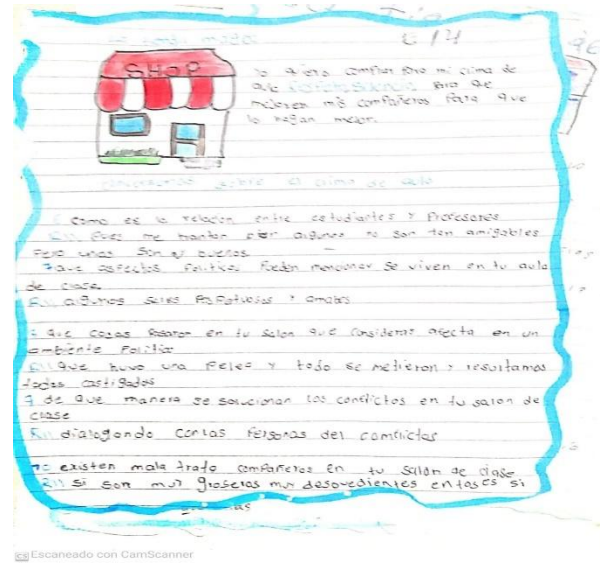 E 14
SHOP
Yo qiero comprar para mi clima de
aula para qe
mejoren mis compañeros para que
lo hagan mejor.
conversemos sobre el clima de aula
Como es la relacion entre estudiantes y Profesores
R// Pues me tratan bien algunos no son tan amigables
Pero unos son
que aspectos Positivos Pueden mencionar se viven en tu aula
de clase
R// algunos
que cosas Pasaron en tu salon que consideras afecta en un
ambiente
R// que huvo una Pelea y todo se metieron y resultamos
todos castigados
de que manera se solucionan los conflictos en tu salon de
clase
R// dialogando con las Personas del comflictos
existen mala trato compañeros en tu salon de clase
R// si son muy groseros muy desovedientes entoses si
CS Escaneado con CamScanner